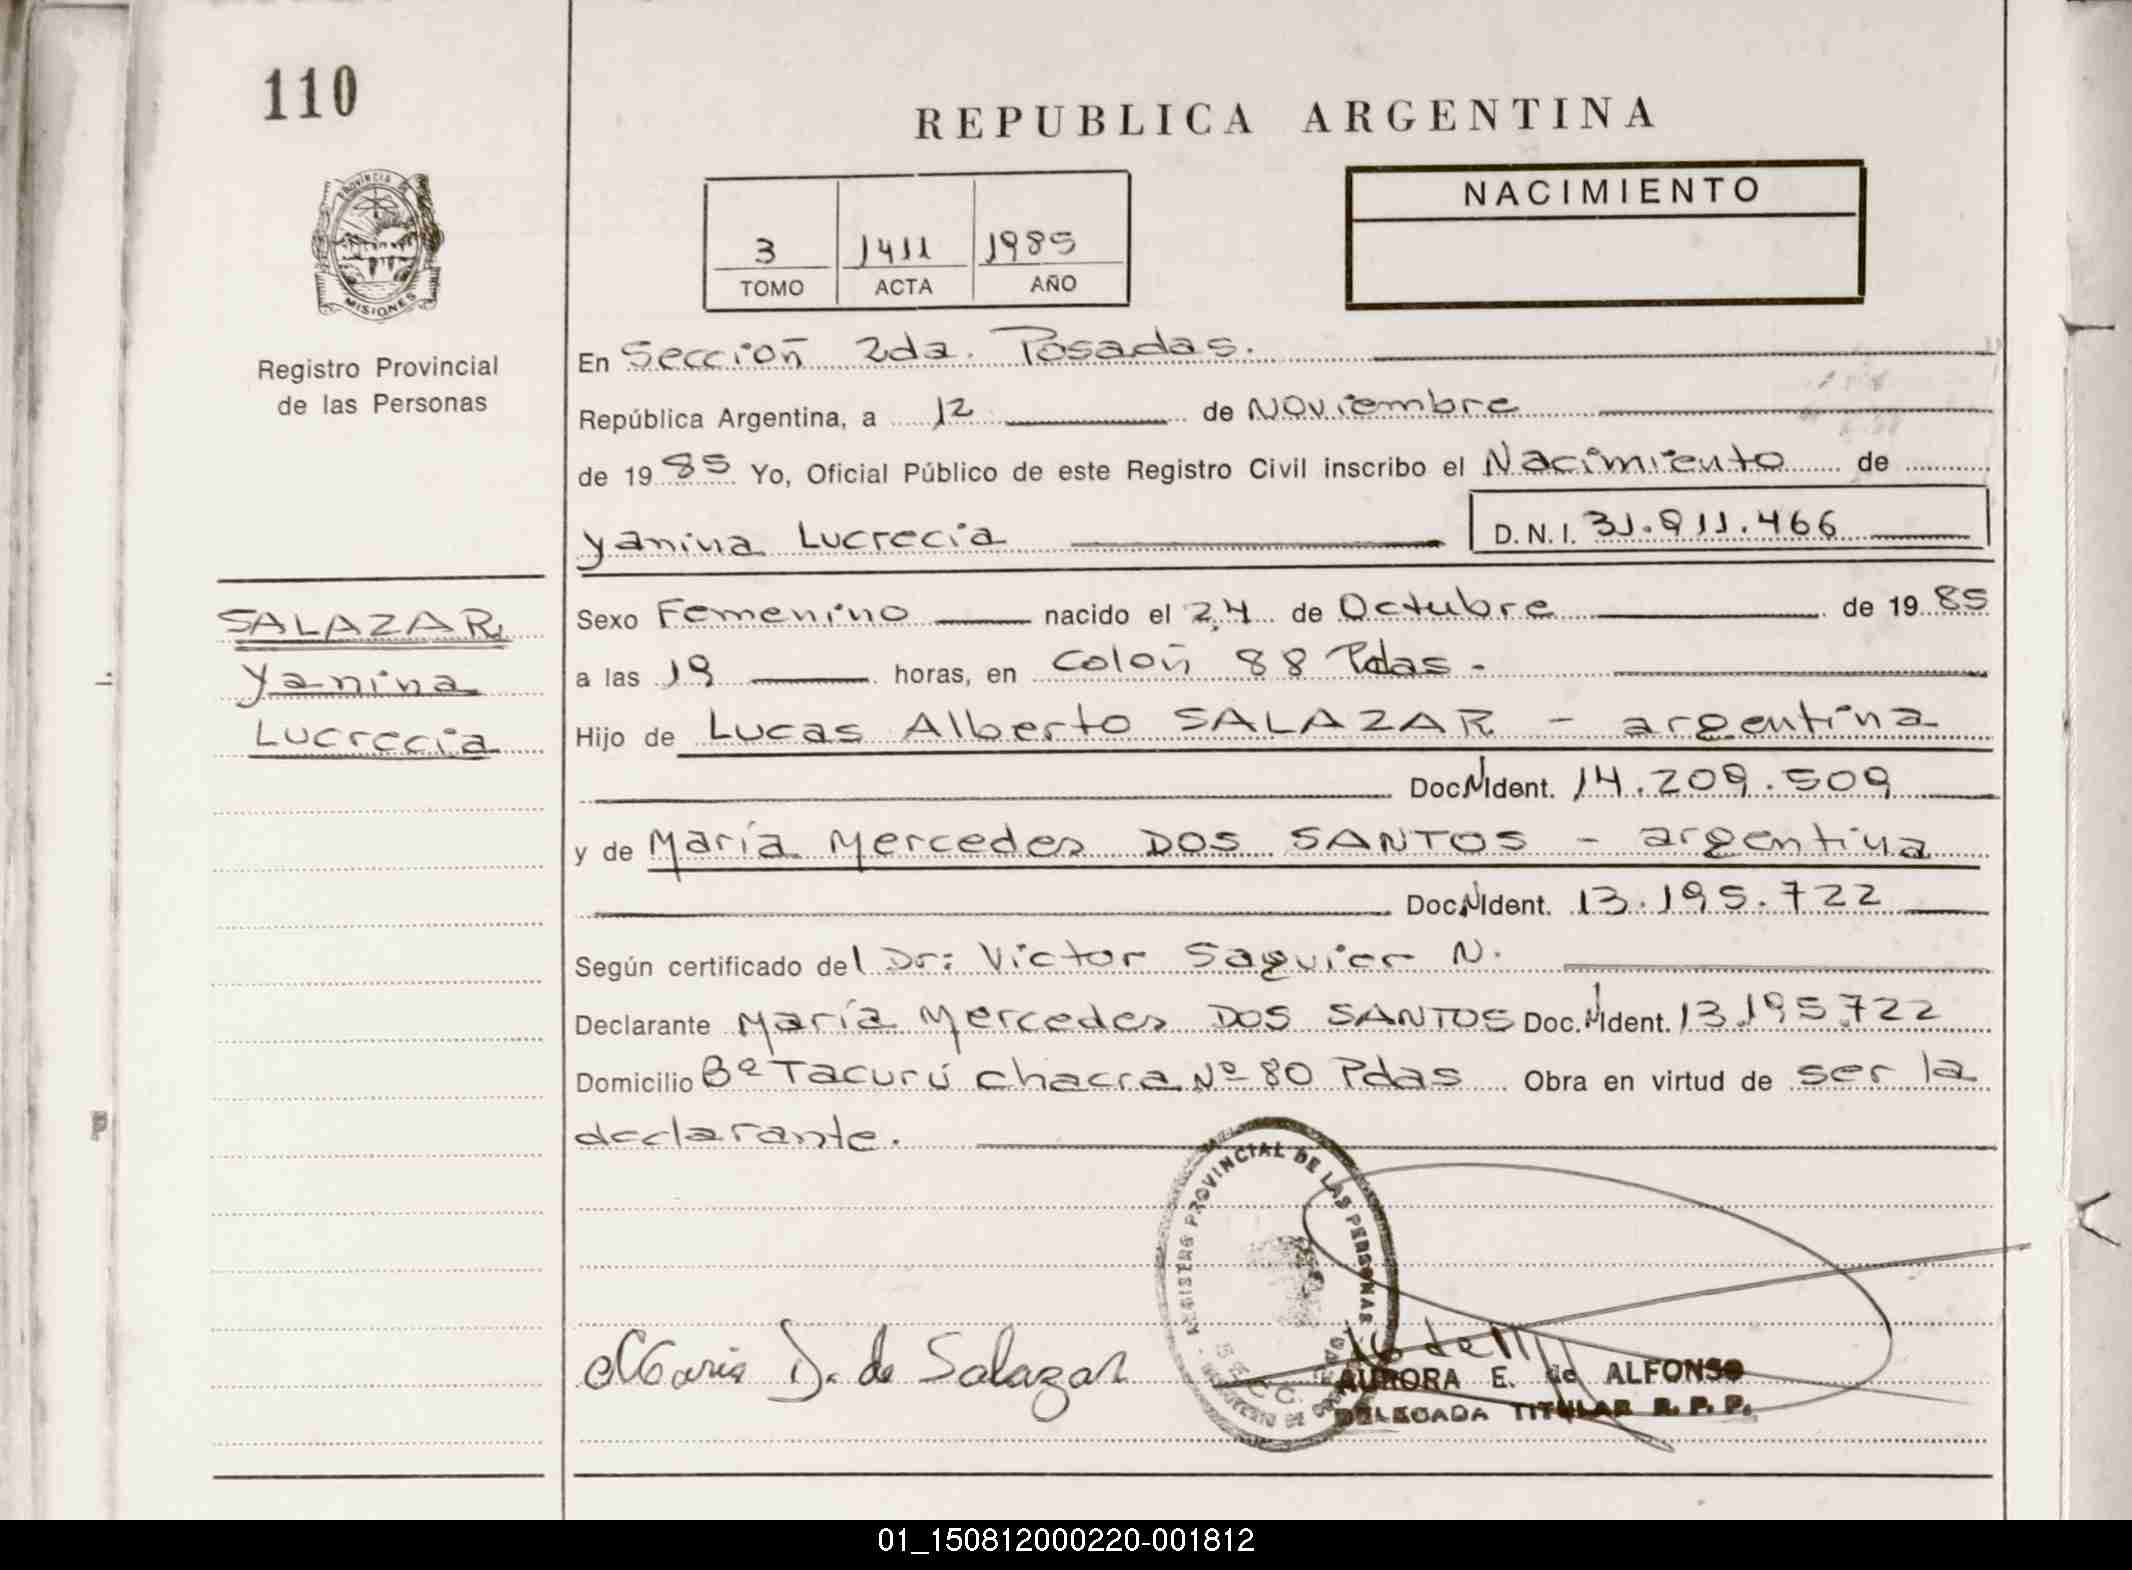 110
REPUBLICA ARGENTINA
PROVINCIA DE
MISIONES
Registro Provincial
de las Personas
3 1411 1985
TOMO ACTA AÑO
NACIMIENTO
En Sección 2da. Posadas.
República Argentina, a 12 de Noviembre
de 1985 Yo, Oficial Público de este Registro Civil inscribo el Nacimiento de
Yanina Lucrecia D.N.I. 31.911.466
SALAZAR
Yanina
Lucrecia
Sexo Femenino nacido el 24 de Octubre de 1985
a las 19 horas, en Colón 88 Pdas.
Hijo de Lucas Alberto SALAZAR - argentina
Doc.N.Ident. 14.209.509
y de María Mercedes DOS SANTOS - argentina
Doc.N.Ident. 13.195.722
Según certificado del Dr: Victor Saguier N.
Declarante María Mercedes DOS SANTOS Doc.N.Ident. 13.195.722
Domicilio Bº Tacurú chacra Nº 80 Pdas Obra en virtud de ser la
declarante.
REGISTRO PROVINCIAL DE LAS PERSONAS
Maria D. de Salazar
AURORA E. de ALFONSO
DELEGADA TITULAR R. P. P.
01_150812000220-001812